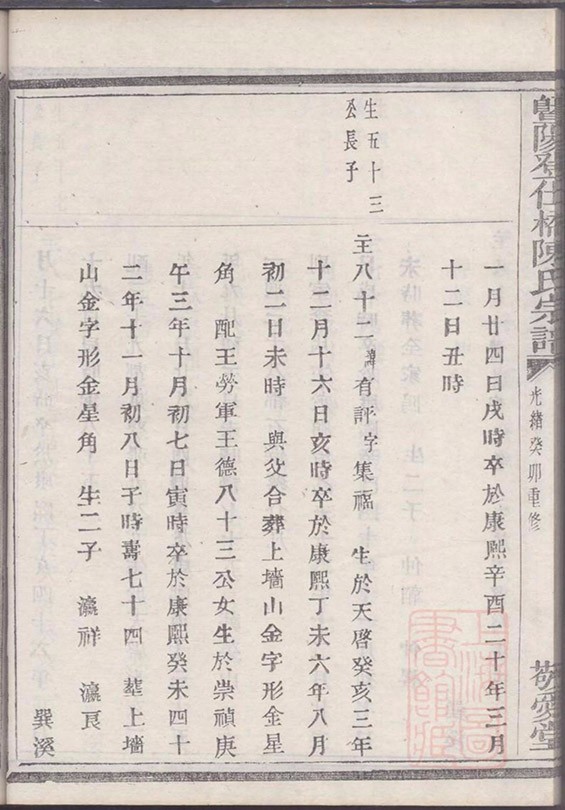 暨陽登仕橋陳氏宗譜
光緒癸卯重修
敬愛堂
一月廿四日戌時卒於康熙辛酉二十年三月
十二日丑時
生五十三
公長子
主八十二 諱有評字集福 生於天啓癸亥三年
十二月十六日亥時卒於康熙丁未六年八月
初二日未時 與父合葬上墻山金字形金星
角 配王勞軍王德八十三公女生於崇禎庚
午三年十月初七日寅時卒於康熙癸未四十
二年十一月初八日子時壽七十四 葬上墻
山金字形金星角 生二子 瀛祥 瀛良
巽溪
上海圖書館藏